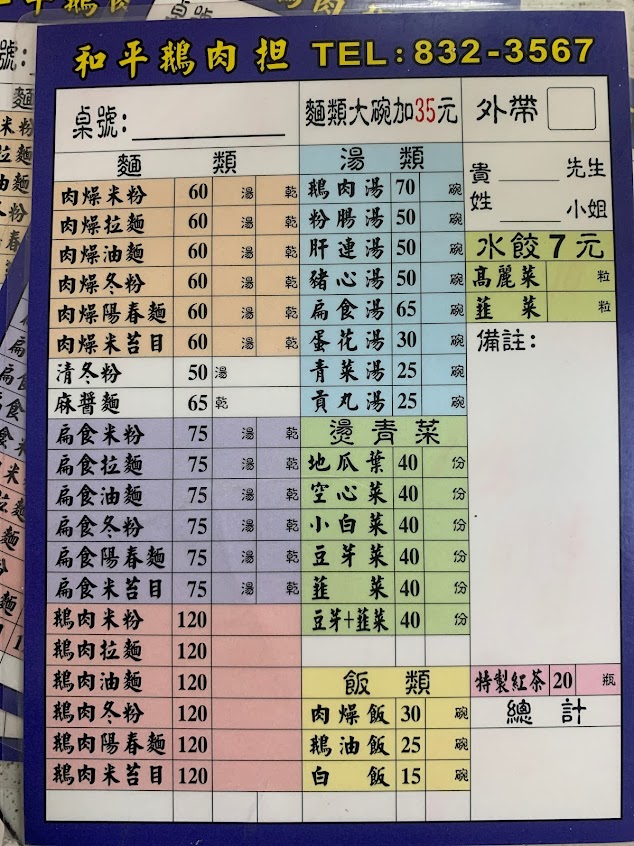 和平鵝肉担 TEL:832-3567
桌號:
麵類大碗加35元
外帶
麵類
肉燥米粉 60 湯 乾
肉燥拉麵 60 湯 乾
肉燥油麵 60 湯 乾
肉燥冬粉 60 湯 乾
肉燥陽春麵 60 湯 乾
肉燥米苔目 60 湯 乾
清冬粉 50 湯
麻醬麵 65 乾
扁食米粉 75 湯 乾
扁食拉麵 75 湯 乾
扁食油麵 75 湯 乾
扁食冬粉 75 湯 乾
扁食陽春麵 75 湯 乾
扁食米苔目 75 湯 乾
鵝肉米粉 120
鵝肉拉麵 120
鵝肉油麵 120
鵝肉冬粉 120
鵝肉陽春麵 120
鵝肉米苔目 120
湯類
鵝肉湯 70 碗
粉腸湯 50 碗
肝連湯 50 碗
豬心湯 50 碗
扁食湯 65 碗
蛋花湯 30 碗
青菜湯 25 碗
貢丸湯 25 碗
燙青菜
地瓜葉 40 份
空心菜 40 份
小白菜 40 份
豆芽菜 40 份
韮菜 40 份
豆芽+韮菜 40 份
飯類
肉燥飯 30 碗
鵝油飯 25 碗
白飯 15 碗
貴 先生
姓 小姐
水餃7元
高麗菜 粒
韮菜 粒
備註:
特製紅茶 20 瓶
總計